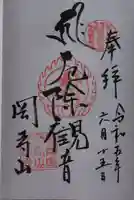 奉拝
令和五年
六月十五日
厄除観音
岡寺山